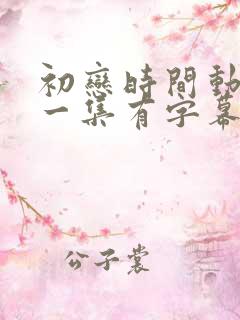 初戀時間動
一集有字幕
公子裳